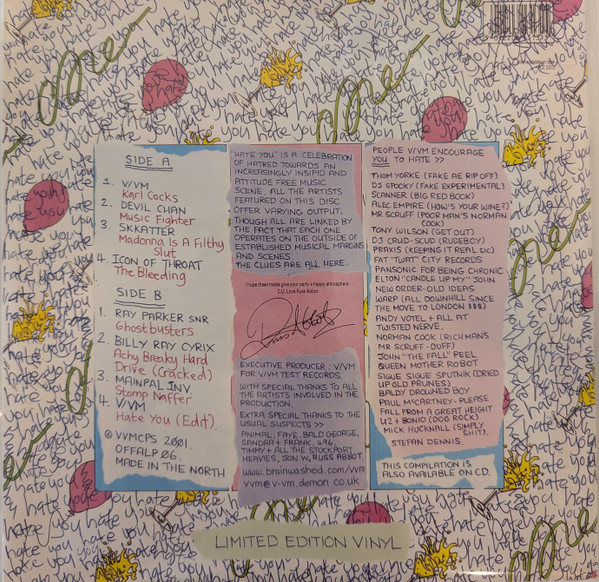 SIDE A
1. V/VM
Karl Cocks
2. DEVIL CHAN
Music Fighter
3. SKKATTER
Madonna Is A Filthy
Slut
4. ICON OF THROAT
The Bleeding
SIDE B
1. RAY PARKER SNR
Ghostbusters
2. BILLY RAY CYRIX
Achy Breaky Hard
Drive (Cracked)
3. MAINPAL INV
Stomp Naffer
4. V/VM
Hate You (Edit).
© VVMCPS 2001.
OFFALP 06.
MADE IN THE NORTH
"HATE YOU" IS A CELEBRATION
OF HATRED TOWARDS AN
INCREASINGLY INSIPID AND
ATTITUDE FREE MUSIC
SCENE. ALL THE ARTISTS
FEATURED ON THIS DISC
OFFER VARYING OUTPUT,
THOUGH ALL ARE LINKED BY
THE FACT THAT EACH ONE
OPERATES ON THE OUTSIDE OF
ESTABLISHED MUSICAL MARGINS
AND SCENES.
THE CLUES ARE ALL HERE.
I hope these tracks give your party a happy atmosphere.
C.U. Love Russ Abbot
Russ Abbot
EXECUTIVE PRODUCER : V/VM
FOR V/VM TEST RECORDS.
WITH SPECIAL THANKS TO ALL
THE ARTISTS INVOLVED IN THE
PRODUCTION.
EXTRA SPECIAL THANKS TO THE
USUAL SUSPECTS >>
ANIMAL, FAYE, BALD GEORGE,
SANDRA + FRANK, #96,
TIMMY + ALL THE STOCKPORT
HEAVIES, JON W, RUSS ABBOT.
www.brainwashed.com/vvm
vvm@v-vm.demon.co.uk
PEOPLE V/VM ENCOURAGE
YOU TO HATE >>
THOM YORKE (FAKE AE RIP OFF)
DJ SPOOKY (FAKE EXPERIMENTAL)
SCANNER (BIG RED BOOK)
ALEC EMPIRE (HOW'S YOUR WINE?)
MR SCRUFF (POOR MAN'S NORMAN
COOK)
TONY WILSON (GET OUT)
DJ CRUD-SCUD (RUDEBOY)
PRAXIS (KEEPING IT REAL SIC)
FAT "TWAT" CITY RECORDS
PANSONIC FOR BEING CHRONIC
ELTON "CANDLE UP MY" JOHN
NEW ORDER - OLD IDEAS
WARP (ALL DOWNHILL SINCE
THE MOVE TO LONDON $$$)
ANDY VOTEL + ALL AT
TWISTED NERVE.
NORMAN COOK (RICH MAN'S
MR SCRUFF - DUFF)
JOHN "THE FALL" PEEL
QUEEN MOTHER ROBOT
SIGUE SIGUE SPUTNIK (DRIED
UP OLD PRUNES)
BADLY DROWNED BOY
PAUL McCARTNEY - PLEASE
FALL FROM A GREAT HEIGHT
U2 + BONIO (DOG ROCK)
MICK HUCKNALL (SIMPLY
SHIT),
STEFAN DENNIS.
THIS COMPILATION IS
ALSO AVAILABLE ON CD.
LIMITED EDITION VINYL